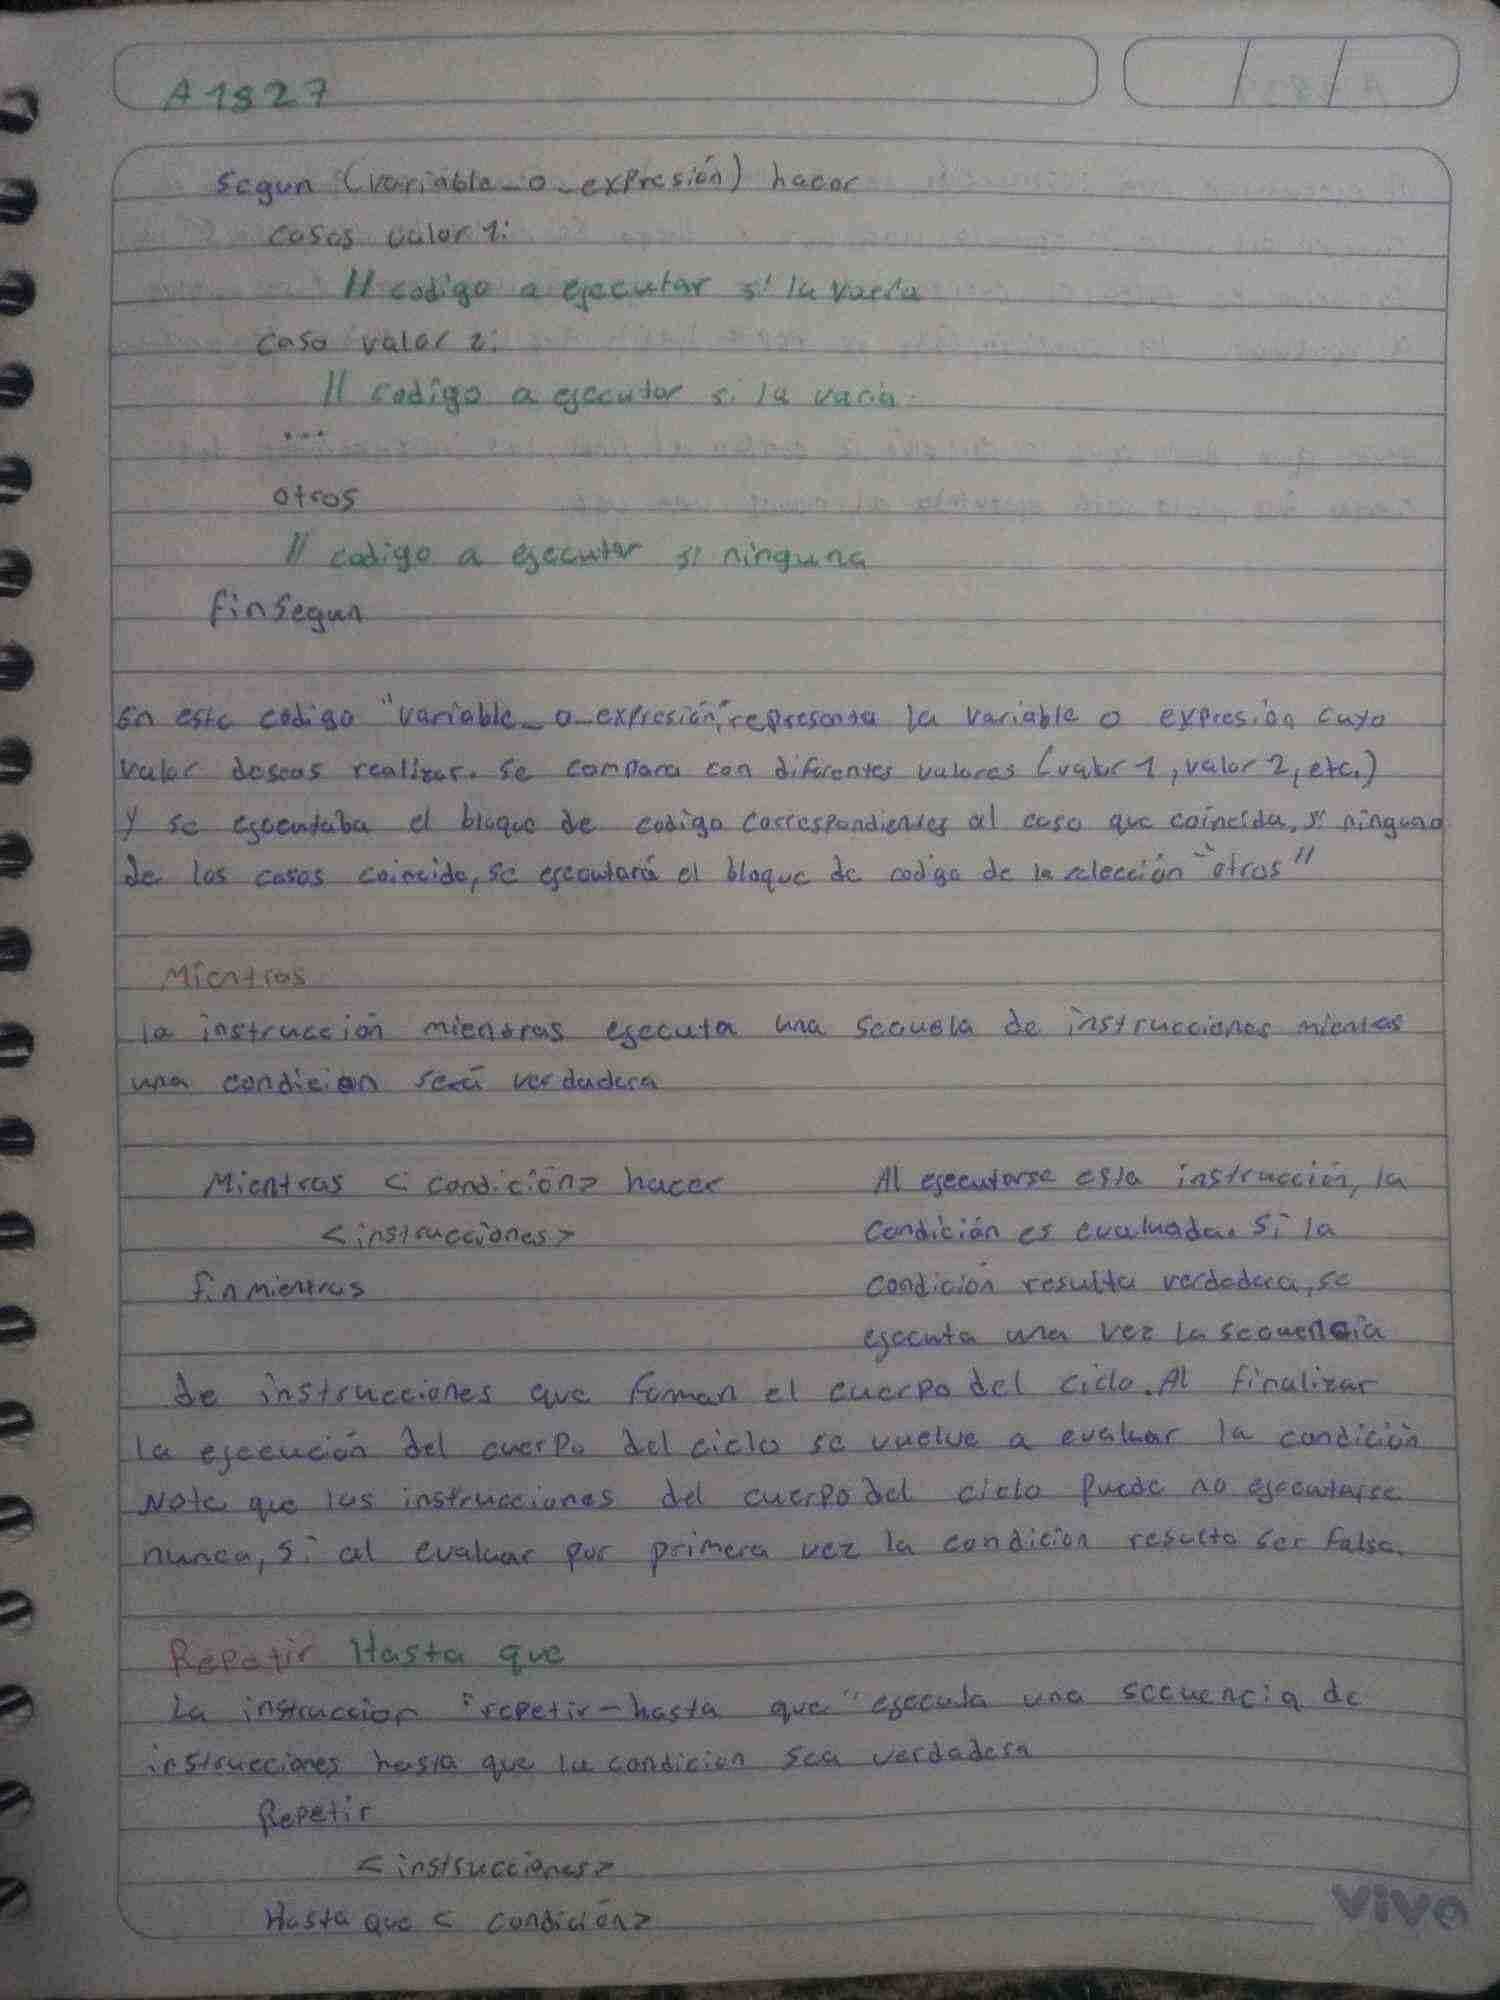 A1827
Segun (variable_o_expresión) hacer
casos valor 1:
// codigo a ejecutar si la varia
caso valor 2:
// codigo a ejecutar si la varia
...
otros
// codigo a ejecutar si ninguna
finsegun
En este codigo "variable_o_expresión", representa la variable o expresión cuyo
valor deseas realizar. se compara con diferentes valores (valor 1, valor 2, etc.)
y se ejecutaba el bloque de codigo correspondientes al caso que coincida, si ninguno
de los casos coincide, se ejecutará el bloque de codigo de la selección "otros"
Mientras
la instrucción mientras ejecuta una de instrucciones mientras
una condicion será verdadera
Mientras <condición> hacer
<instrucciones>
finmientras
Al ejecutarse esta instrucción, la
condición es evaluada. Si la
condición resulta verdadera, se
ejecuta una vez la secuencia
de instrucciones que forman el cuerpo del ciclo. Al finalizar
la ejecución del cuerpo del ciclo se vuelve a evaluar la condición
Note que las instrucciones del cuerpo del ciclo puede no ejecutarse
nunca, si al evaluar por primera vez la condicion resulto ser falsa.
Repetir Hasta que
La instruccion "repetir-hasta que" ejecuta una secuencia de
instrucciones hasta que la condicion sea verdadera
Repetir
<instrucciones>
Hasta que <condición>
vivo